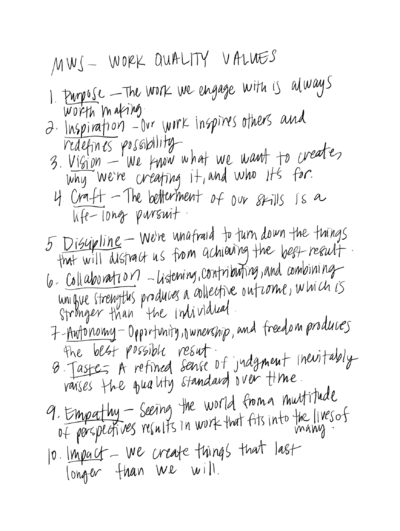 MWS – WORK QUALITY VALUES
1. Purpose – The work we engage with is always
worth making.
2. Inspiration – Our work inspires others and
redefines possibility
3. Vision – We know what we want to create,
why we're creating it, and who it's for.
4 Craft – The betterment of our skills is a
life-long pursuit.
5 Discipline – We're unafraid to turn down the things
that will distract us from achieving the best result.
6. Collaboration – Listening, contributing, and combining
unique strengths produces a collective outcome, which is
stronger than the individual.
7- Autonomy – Opportunity, ownership, and freedom produces
the best possible result.
8. Taste – A refined sense of judgment inevitably
raises the quality standard over time.
9. Empathy – Seeing the world from a multitude
of perspectives results in work that fits into the lives of
many.
10. Impact – We create things that last
longer than we will.